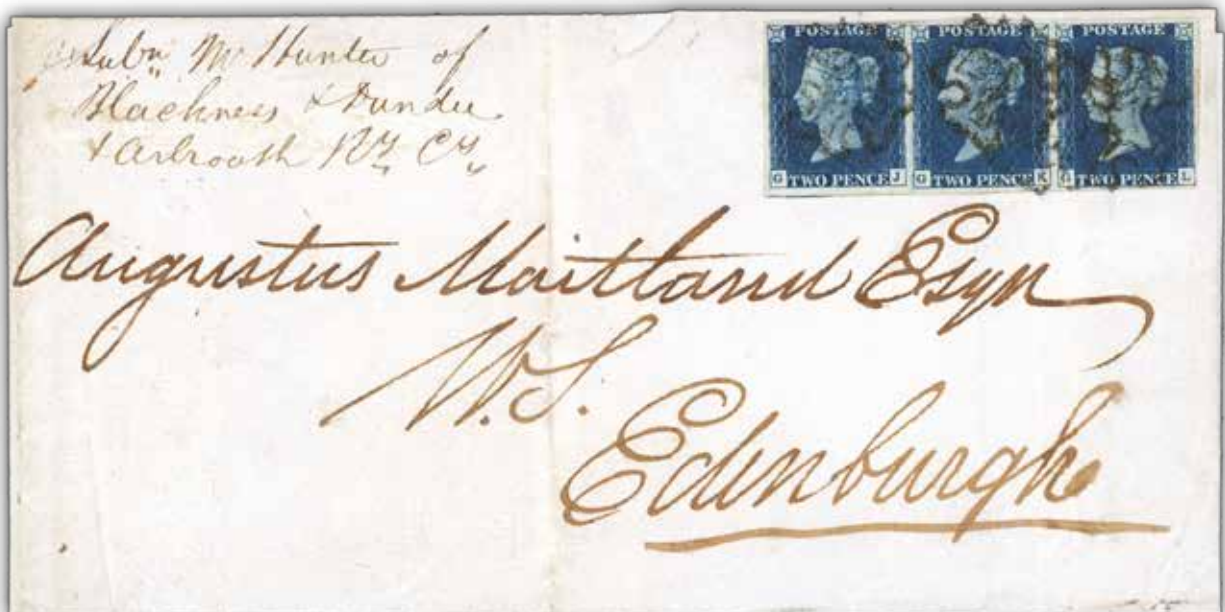 Mr Hunter of
Blackness & Dundee
& Arbroath Ry Cy
POSTAGE POSTAGE POSTAGE
G TWO PENCE J G TWO PENCE K G TWO PENCE L
Augustus Maitland Esqr
W.S.
Edinburgh